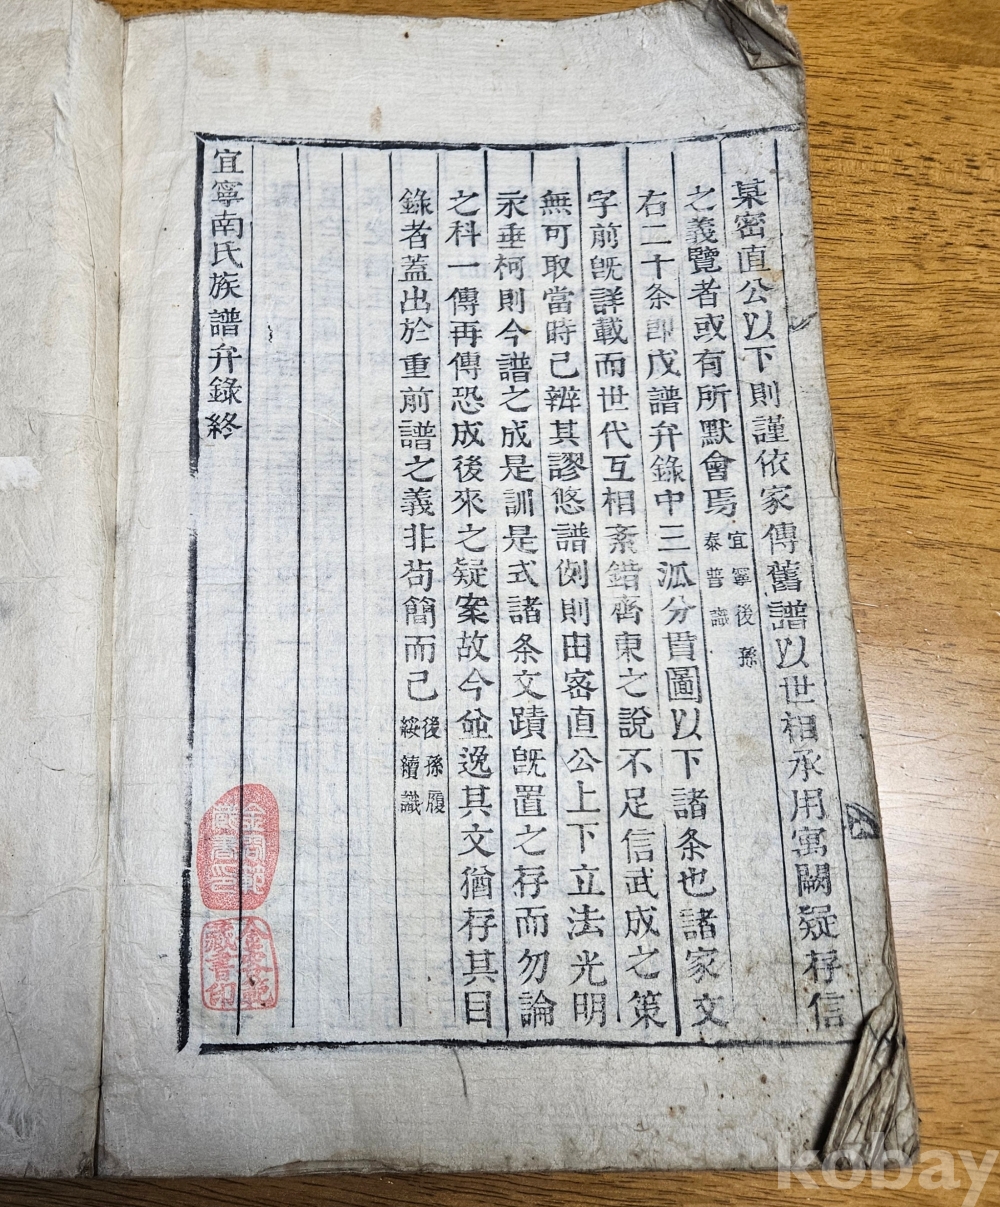 某密直公以下則謹依家傳舊譜以世相承用寓闕疑存信
之義覽者或有所默會焉 宜寧後孫
泰普識
右二十条即戊譜弁錄中三派分貫圖以下諸条也諸家文
字前旣詳載而世代互相紊錯齊東之說不足信武成之策
無可取當時已辨其謬悠譜例則由密直公上下立法光明
永垂柯則今譜之成是訓是式諸条文蹟旣置之存而勿論
之科一傳再傳恐成後來之疑案故今並逸其文猶存其目
錄者蓋出於重前譜之義非苟簡而已 後孫履
綏續識
宜寧南氏族譜弁錄終
藏書印
kobay